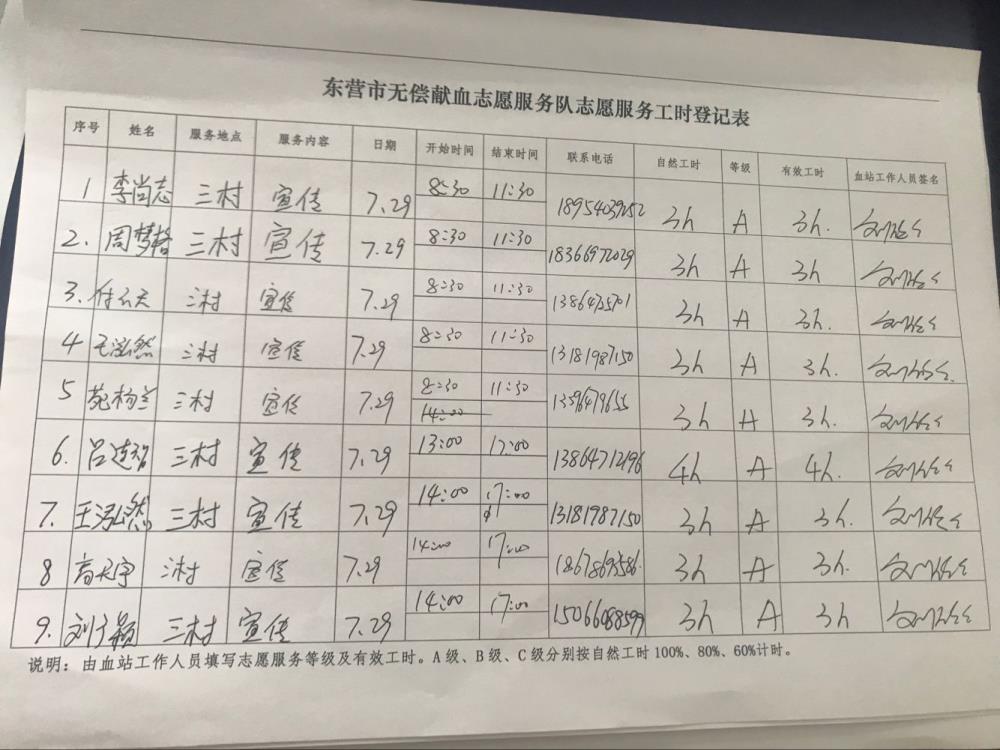 东营市无偿献血志愿服务队志愿服务工时登记表
序号 姓名 服务地点 服务内容 日期 开始时间 结束时间 联系电话 自然工时 等级 有效工时 血站工作人员签名
1 李尚志 三村 宣传 7.29 8:30 11:30 18954039252 3h A 3h
2. 周梦格 三村 宣传 7.29 8:30 11:30 18366972029 3h A 3h
3. 三村 宣传 7.29 8:30 11:30 13864725701 3h A 3h.
4 王泓然 三村 宣传 7.29 8:30 11:30 13181987150 3h A 3h.
5 苑杨兰 三村 宣传 7.29 8:30 11:30 3h A 3h.
14:00
6. 吕连智 三村 宣传 7.29 13:00 17:00 13864712196 4h A 4h.
7. 王泓然 三村 宣传 7.29 14:00 17:00 13181987150 3h A 3h.
8 高天宇 三村 宣传 7.29 14:00 17:00 18678693586 3h A 3h.
9. 刘子颖 三村 宣传 7.29 14:00 17:00 15066088599 3h A 3h
说明：由血站工作人员填写志愿服务等级及有效工时。A级、B级、C级分别按自然工时100%、80%、60%计时。